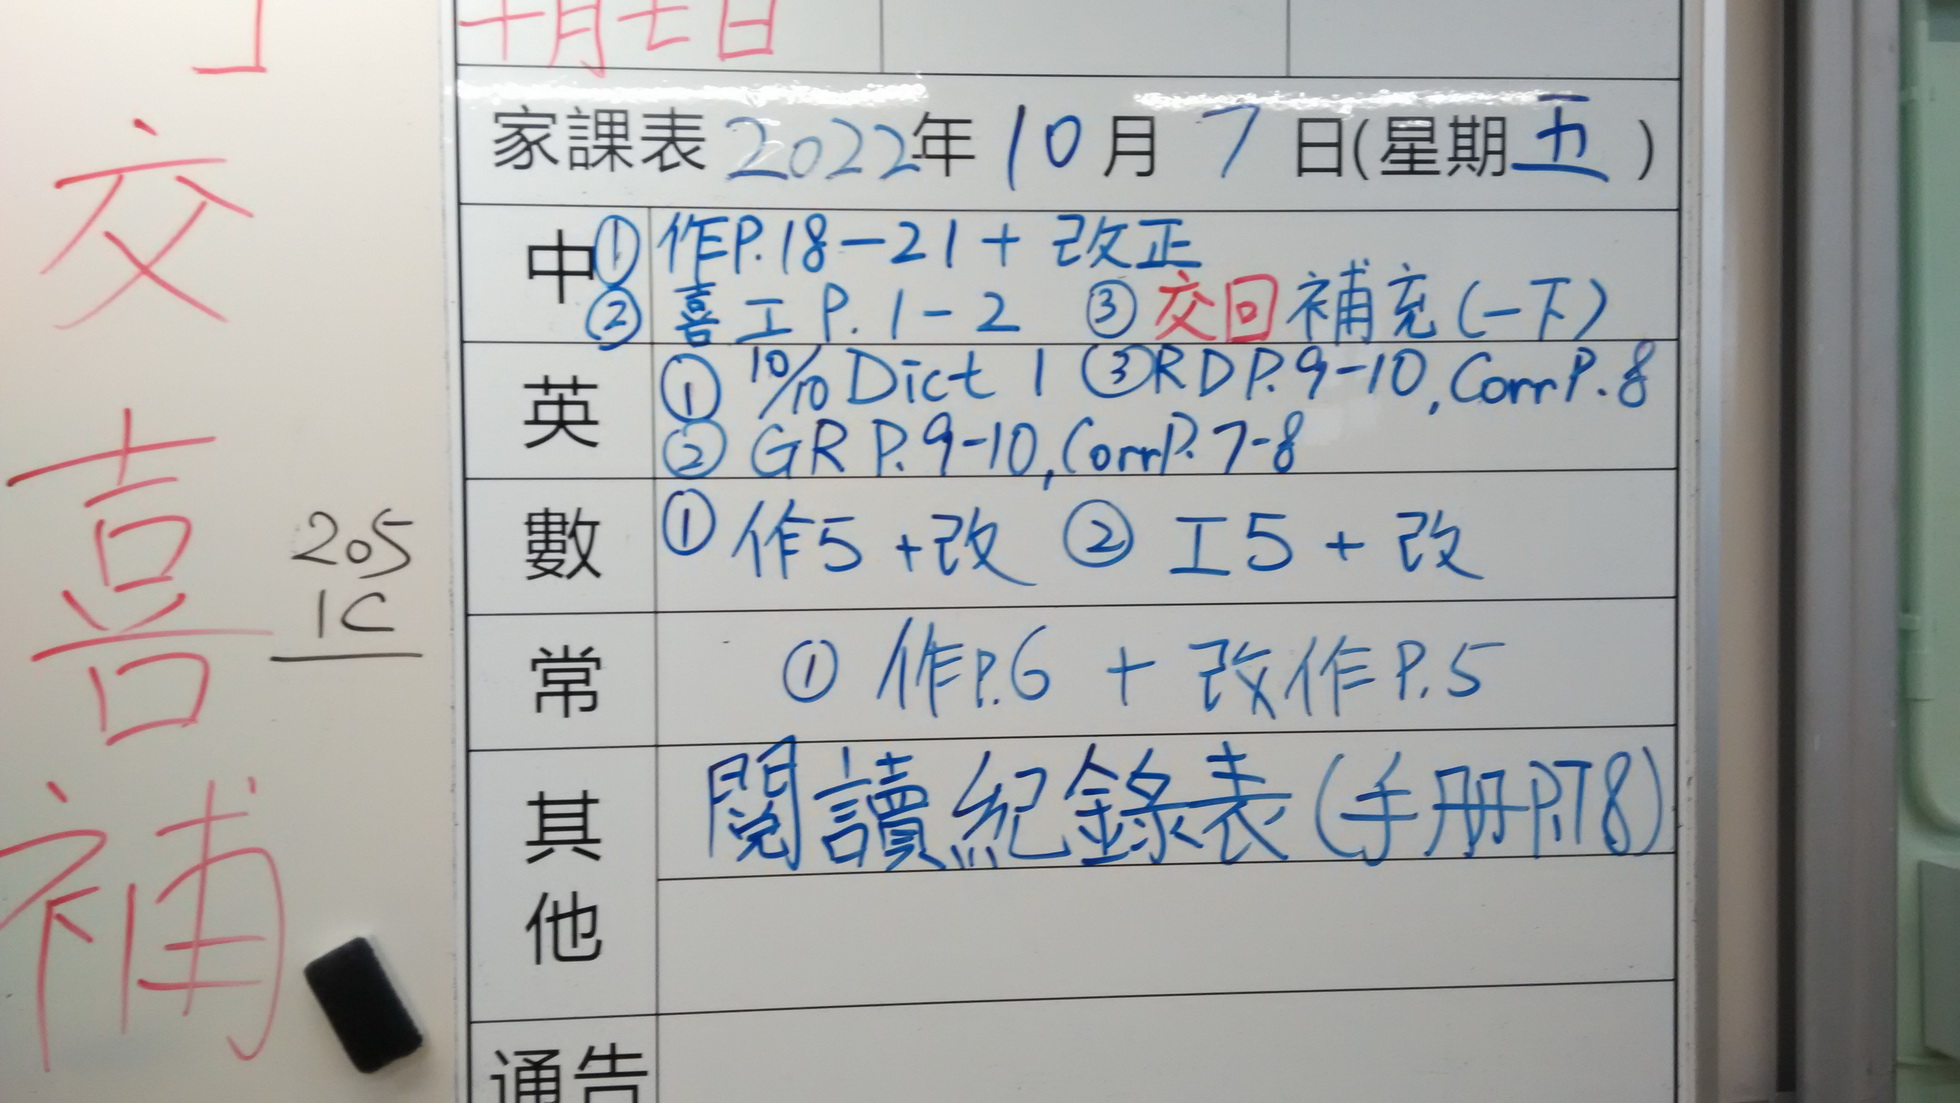 十月七日
家課表 2022年 10月 7日(星期五)
中 ① 作P.18-21 + 改正
② 喜工 P.1-2 ③ 交回補充(一下)
英 ① 10/10 Dict 1 ③ RD P.9-10, Corr P.8
② GR P.9-10, Corr P.7-8
數 ① 作5 +改 ② 工5 + 改
常 ① 作P.6 + 改作P.5
其他 閱讀紀錄表(手册P.T8)
通告
交
喜
補
205
1C